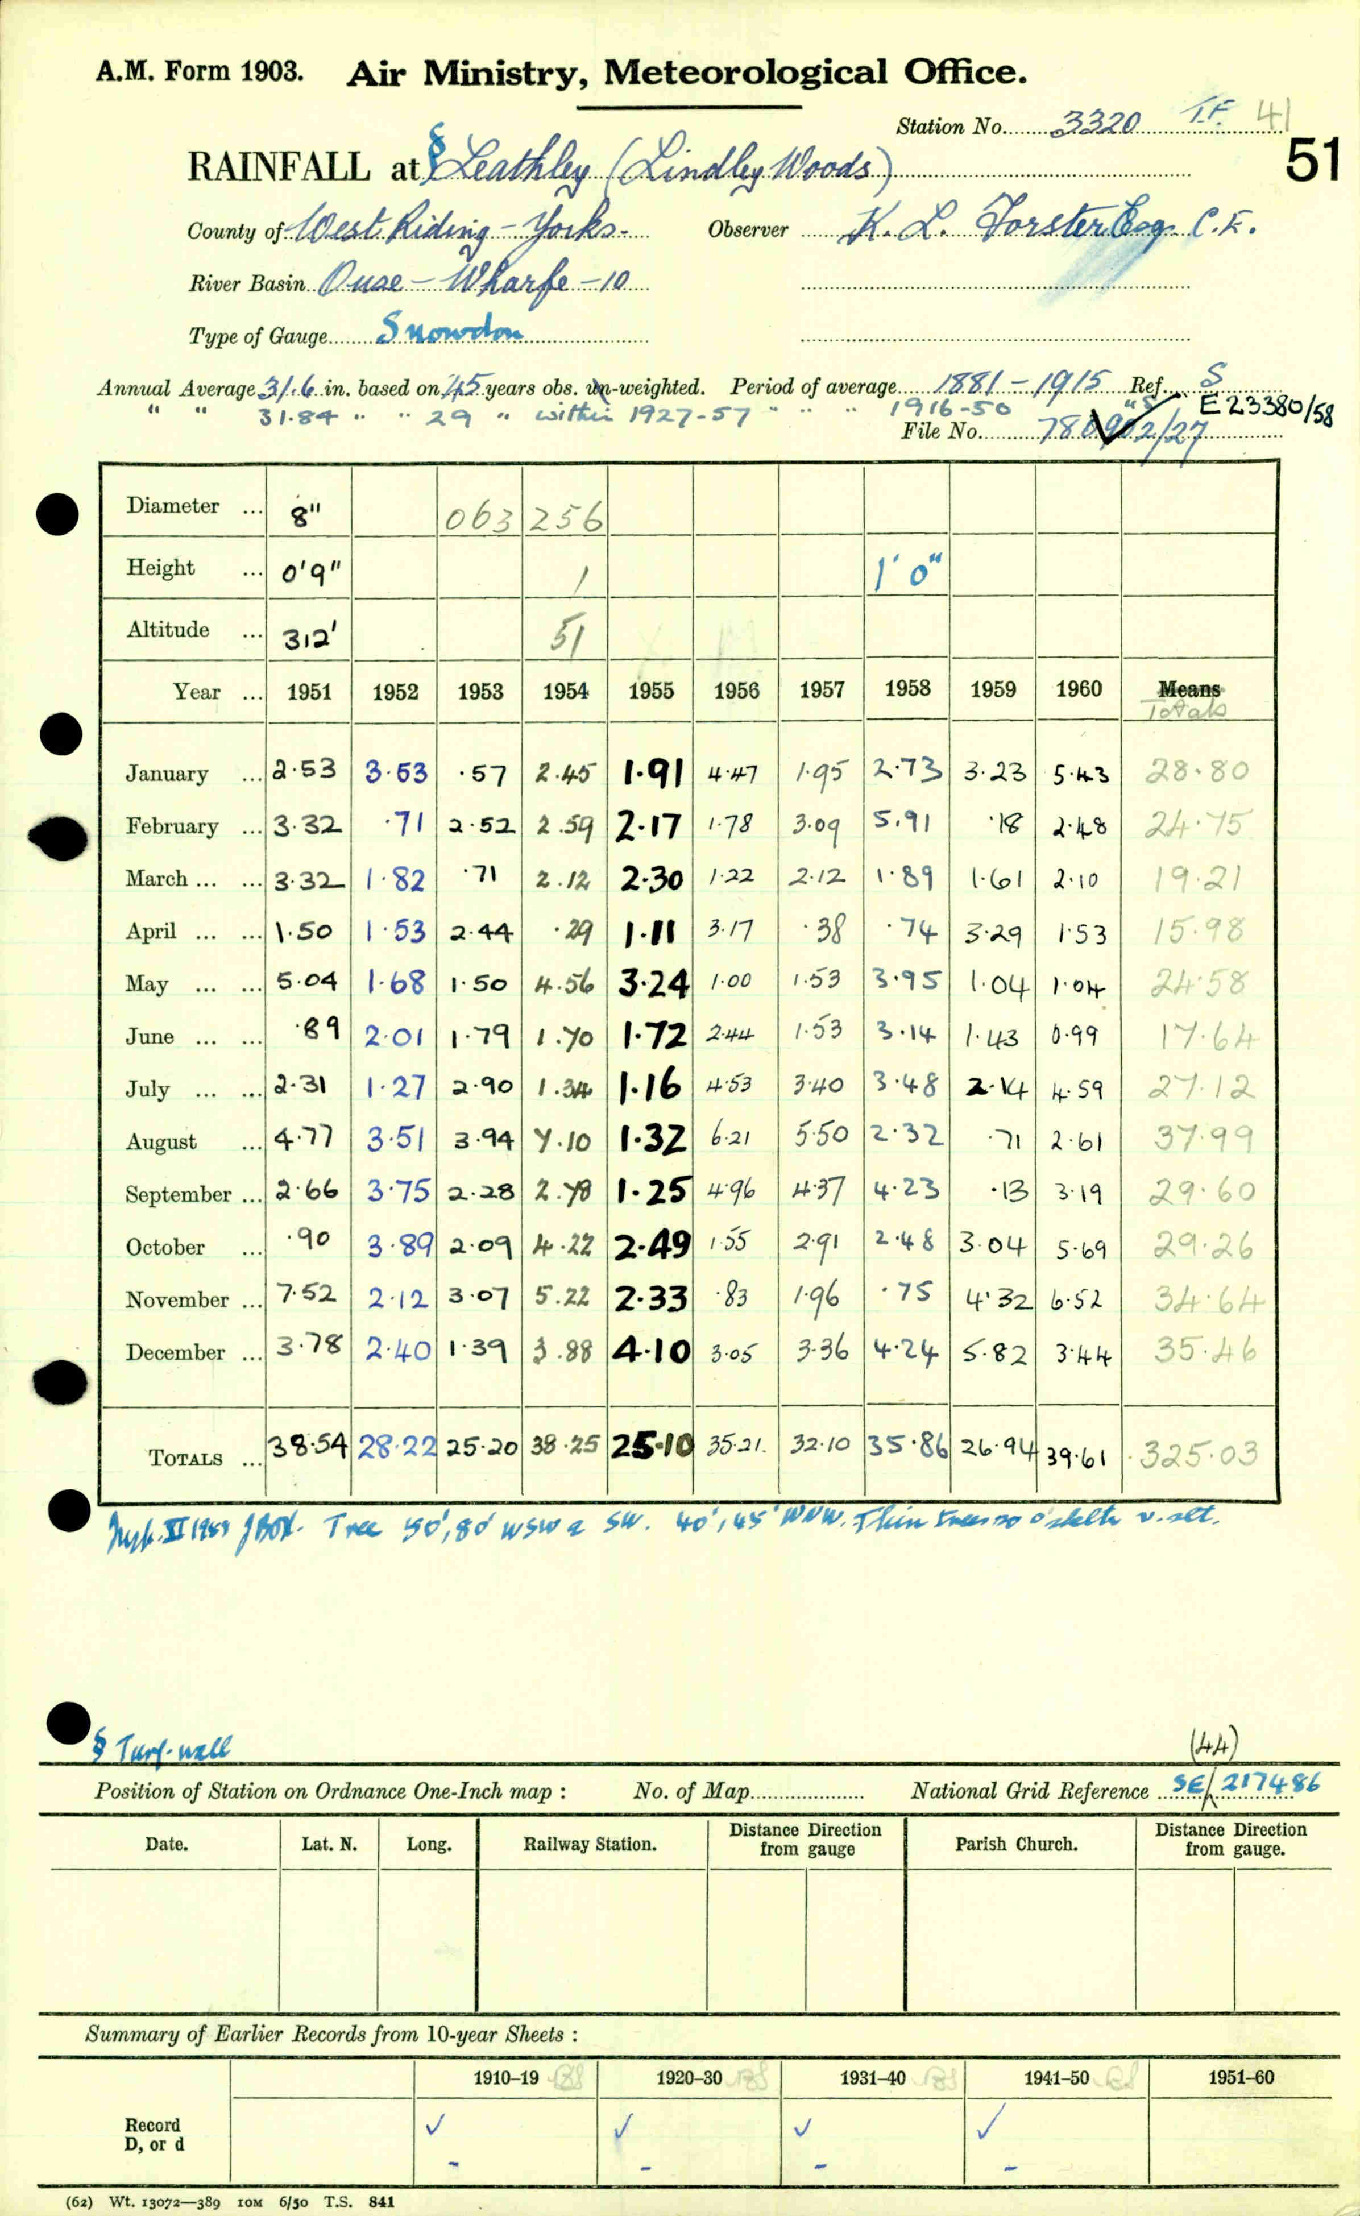 A.M. Form 1903. Air Ministry, Meteorological Office.
Station No. 3320 T.F. 41
51
RAINFALL at § Leathley (Lindley Woods)
County of West Riding - Yorks. Observer K. L. Forster Esq. C.E.
River Basin Ouse - Wharfe - 10
Type of Gauge Snowdon
Annual Average 31.6 in. based on 45 years obs. un-weighted. Period of average 1881 - 1915 Ref. S
" " 31.84 " " 29 " within 1927-57 " " " 1916-50 "S E23380/58
File No.
Diameter ... 8" 063 256
Height ... 0'9" 1 1' 0"
Altitude ... 312' 51
Year ... 1951 1952 1953 1954 1955 1956 1957 1958 1959 1960 Means
Totals
January ... 2.53 3.53 .57 2.45 1.91 4.47 1.95 2.73 3.23 5.43 28.80
February ... 3.32 .71 2.52 2.59 2.17 1.78 3.09 5.91 .18 2.48 24.75
March ... ... 3.32 1.82 .71 2.12 2.30 1.22 2.12 1.89 1.61 2.10 19.21
April ... ... 1.50 1.53 2.44 .29 1.11 3.17 .38 .74 3.29 1.53 15.98
May ... ... 5.04 1.68 1.50 4.56 3.24 1.00 1.53 3.95 1.04 1.04 24.58
June ... ... .89 2.01 1.79 1.70 1.72 2.44 1.53 3.14 1.43 0.99 17.64
July ... ... 2.31 1.27 2.90 1.34 1.16 4.53 3.40 3.48 2.14 4.59 27.12
August ... 4.77 3.51 3.94 7.10 1.32 6.21 5.50 2.32 .71 2.61 37.99
September ... 2.66 3.75 2.28 2.78 1.25 4.96 4.37 4.23 .13 3.19 29.60
October ... .90 3.89 2.09 4.22 2.49 1.55 2.91 2.48 3.04 5.69 29.26
November ... 7.52 2.12 3.07 5.22 2.33 .83 1.96 .75 4.32 6.52 34.64
December ... 3.78 2.40 1.39 3.88 4.10 3.05 3.36 4.24 5.82 3.44 35.46
TOTALS ... 38.54 28.22 25.20 38.25 25.10 35.21 32.10 35.86 26.94 39.61 325.03
Tree 50', 80' WSW & SW. 40', 45' WNW. Thin trees no o'shltr v. slt.
§ Turf-wall
(44)
Position of Station on Ordnance One-Inch map : No. of Map National Grid Reference SE/217486
Date. Lat. N. Long. Railway Station. Distance from Direction gauge Parish Church. Distance from Direction gauge.
Summary of Earlier Records from 10-year Sheets :
1910–19 1920–30 1931–40 1941–50 1951–60
Record ✓ ✓ ✓ ✓
D, or d - - - -
(62) Wt. 13072—389 10M 6/50 T.S. 841